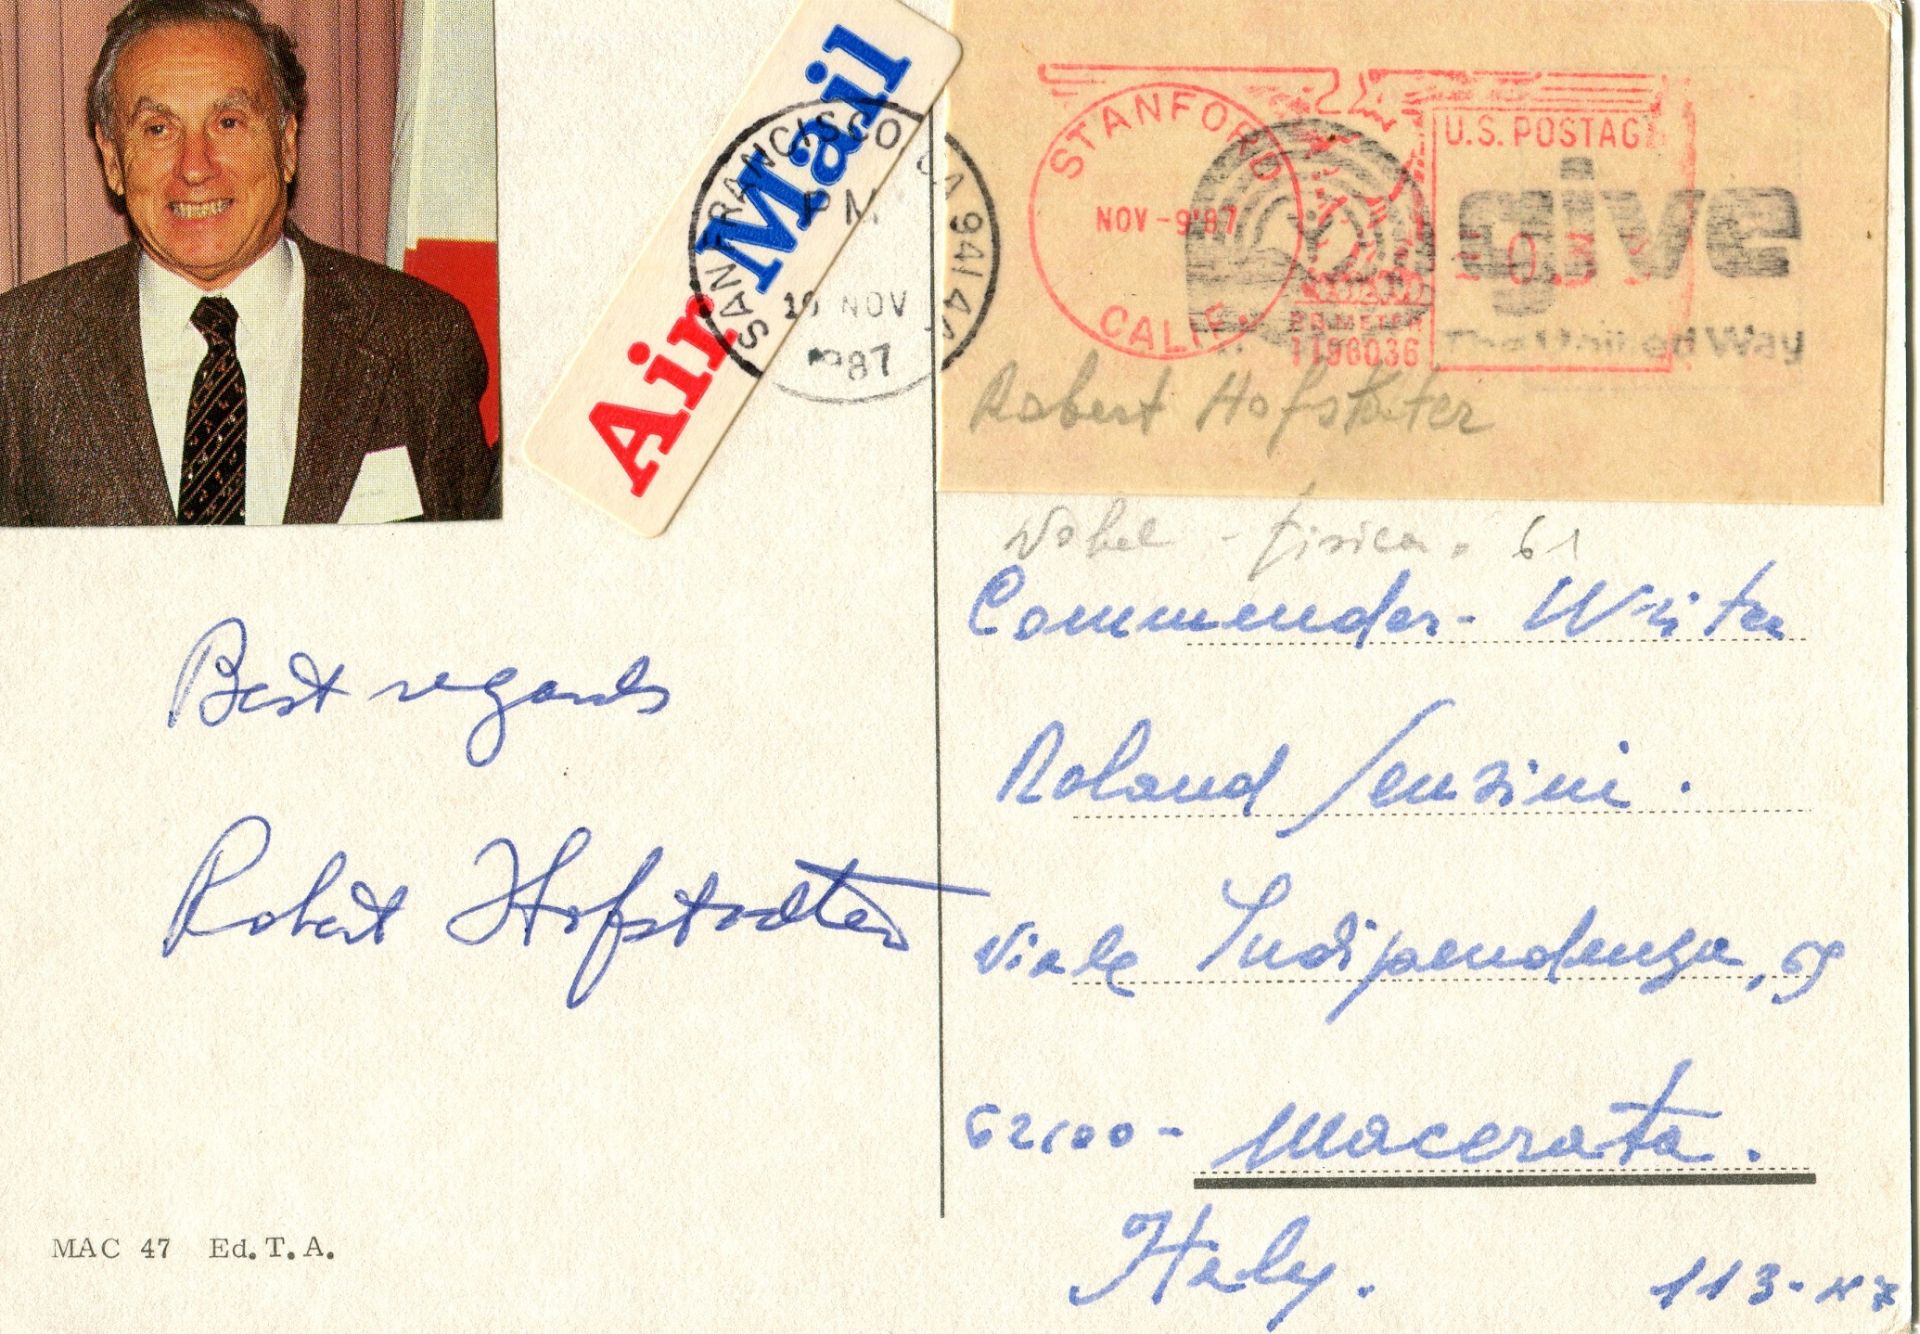 Air Mail
SAN FRANCISCO CA 941 40
P M
NOV
1987
STANFORD
NOV -9'87
CALIF.
U.S. POSTAG
PB METER
1198036
give
The United Way
Robert Hofstater
Nobel - fisica. 61
Commender- Writer
Roland Senzini.
Viale Indipendenza, 69
62100- Macerata.
Italy.
113-
Best regards
Robert Hofstadter
MAC 47 Ed. T. A.